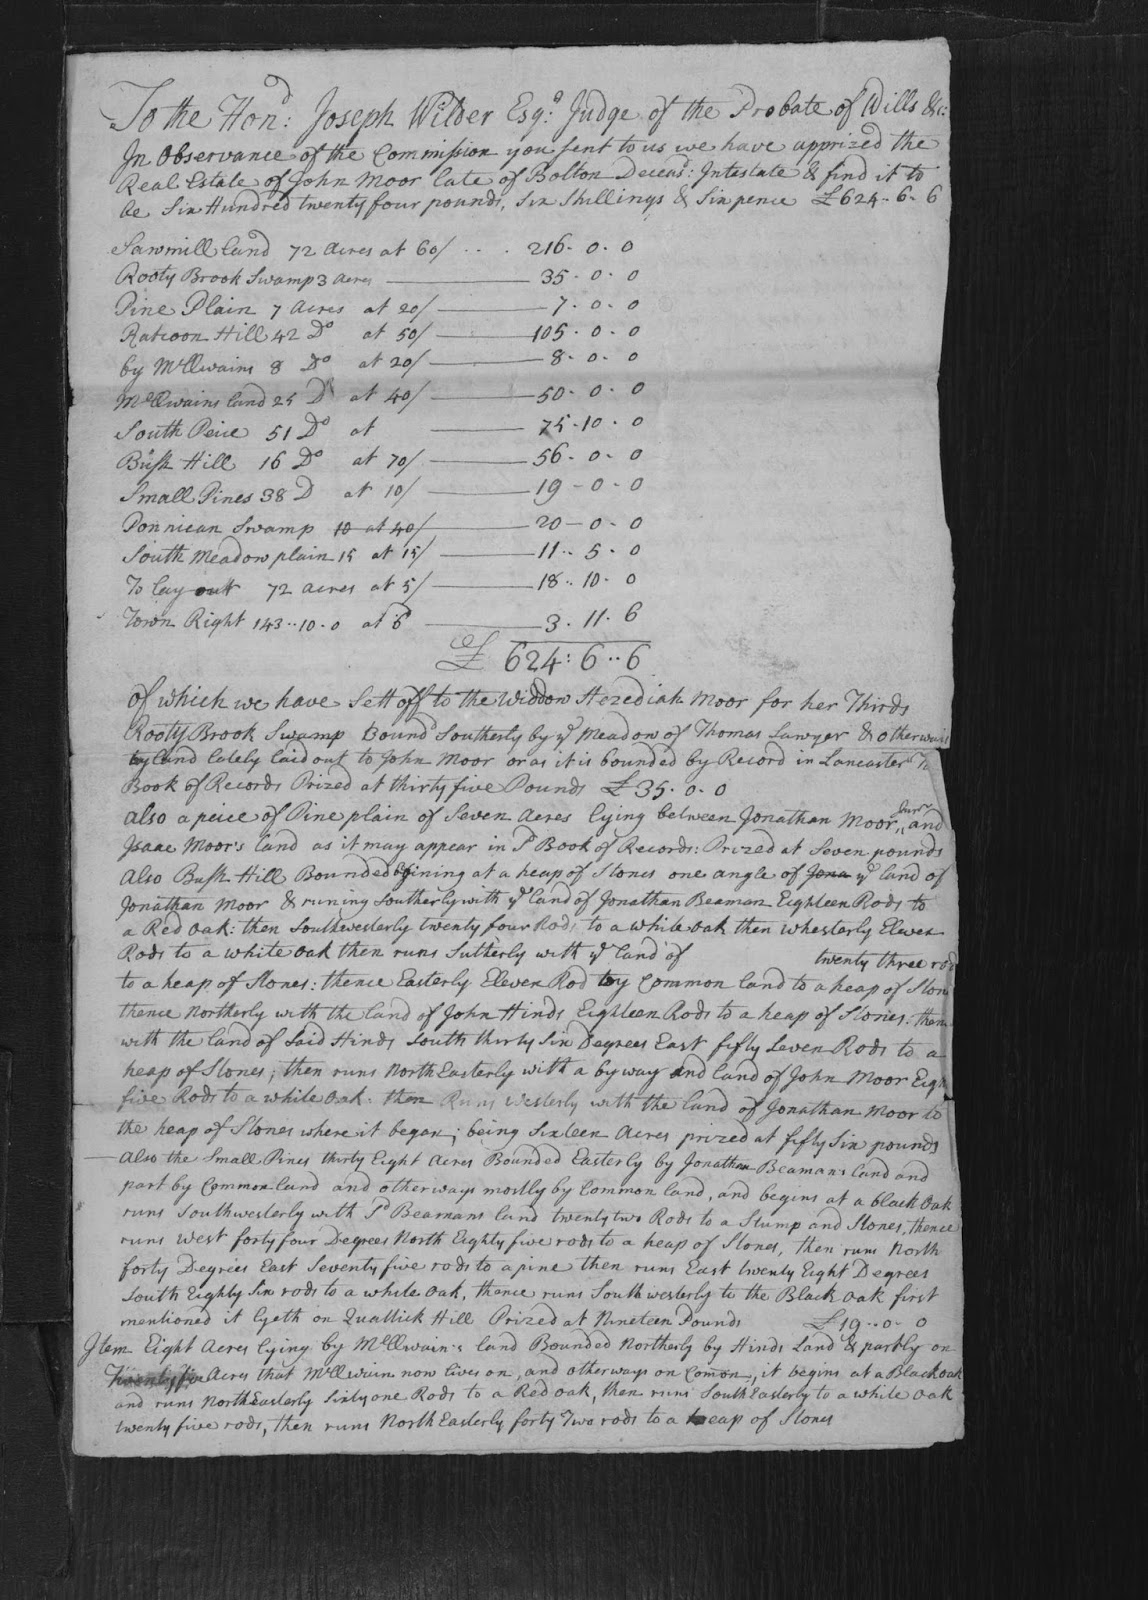 To the Hond: Joseph Wilder Esqr: Judge of the Probate of Wills &c:
In Observance of the Commission you sent to us we have apprized the
Real Estate of John Moor late of Bolton Deceasd: Intestate & find it to
be Six Hundred twenty four pounds, six shillings & Sixpence £624-6-6
Sawmill land 72 acres at 60/ 216-0-0
Rooty Brook Swamp 3 acres 35-0-0
Pine Plain 7 acres at 20/ 7-0-0
Ratcoon Hill 42 Do at 50/ 105-0-0
by McIlwains 8 Do at 20/ 8-0-0
McIlwains land 25 D at 40/ 50-0-0
South Peice 51 Do at 75-10-0
Bush Hill 16 Do at 70/ 56-0-0
Small Pines 38 D at 10/ 19-0-0
Ponnican Swamp 10 at 40/ 20-0-0
South Meadow plain 15 at 15/ 11-5-0
To lay outt 72 acres at 5/ 18-10-0
Town Right 143-10-0 at 6 3-11-6
£ 624:6-6
of which we have Sett off to the Widdow Hezediah Moor for her Thirds
Rooty Brook Swamp Bound Southerly by ye Meadow of Thomas Sawyer & otherwais
by land lately laid out to John Moor or as it is bounded by Record in Lancaster
Book of Records Prized at thirty five Pounds £35-0-0
also a peice of Pine plain of Seven Acres lying between Jonathan Moor, Junr and
Isaac Moor's land as it may appear in sd Book of Records: Prized at Seven pounds
Also Bush Hill Bounded begining at a heap of Stones one angle of Jona ye land of
Jonathan Moor & runing Southerly with ye land of Jonathan Beaman Eighteen Rods to
a Red oak: then Southwesterly twenty four Rods to a white oak then whesterly Eleven
Rods to a white oak then runs Sutherly with ye land of twenty three rod
to a heap of Stones: thence Easterly Eleven Rod by Common land to a heap of Stone
thence Northerly with the land of John Hinds Eighteen Rods to a heap of Stones: then
with the land of Said Hinds South thirty Six Degrees East fifty Seven Rods to a
heap of Stones; then runs North Easterly with a by way and land of John Moor Eigh
five Rods to a white oak: then Runs Westerly with the land of Jonathan Moor to
the heap of Stones where it began; being Sixteen Acres prized at fifty Six pounds
Also the Small Pines thirty Eight Acres Bounded Easterly by Jonathan Beaman's land and
part by Common land and otherways mostly by Common land, and begins at a black oak
runs Southwesterly with sd Beamans land twenty two Rods to a Stump and Stones, thence
runs West forty four Degrees North Eighty five rods to a heap of Stones, then runs North
forty Degrees East Seventy five rods to a pine then runs East twenty Eight Degrees
South Eighty Six rods to a white oak, thence runs Southwesterly to the Black oak first
mentioned it lyeth on Quattick Hill Prized at Nineteen Pounds £19-0-0
Item Eight Acres lying by McIlwain's land Bounded Northerly by Hinds Land & partly on
Acres that McIlwain now lives on, and otherways on Comon, it begins at a Black oak
and runs North Easterly Sixty one Rods to a Red oak, then runs South Easterly to a white oak
twenty five rods, then runs North Easterly forty Two rods to a heap of Stones